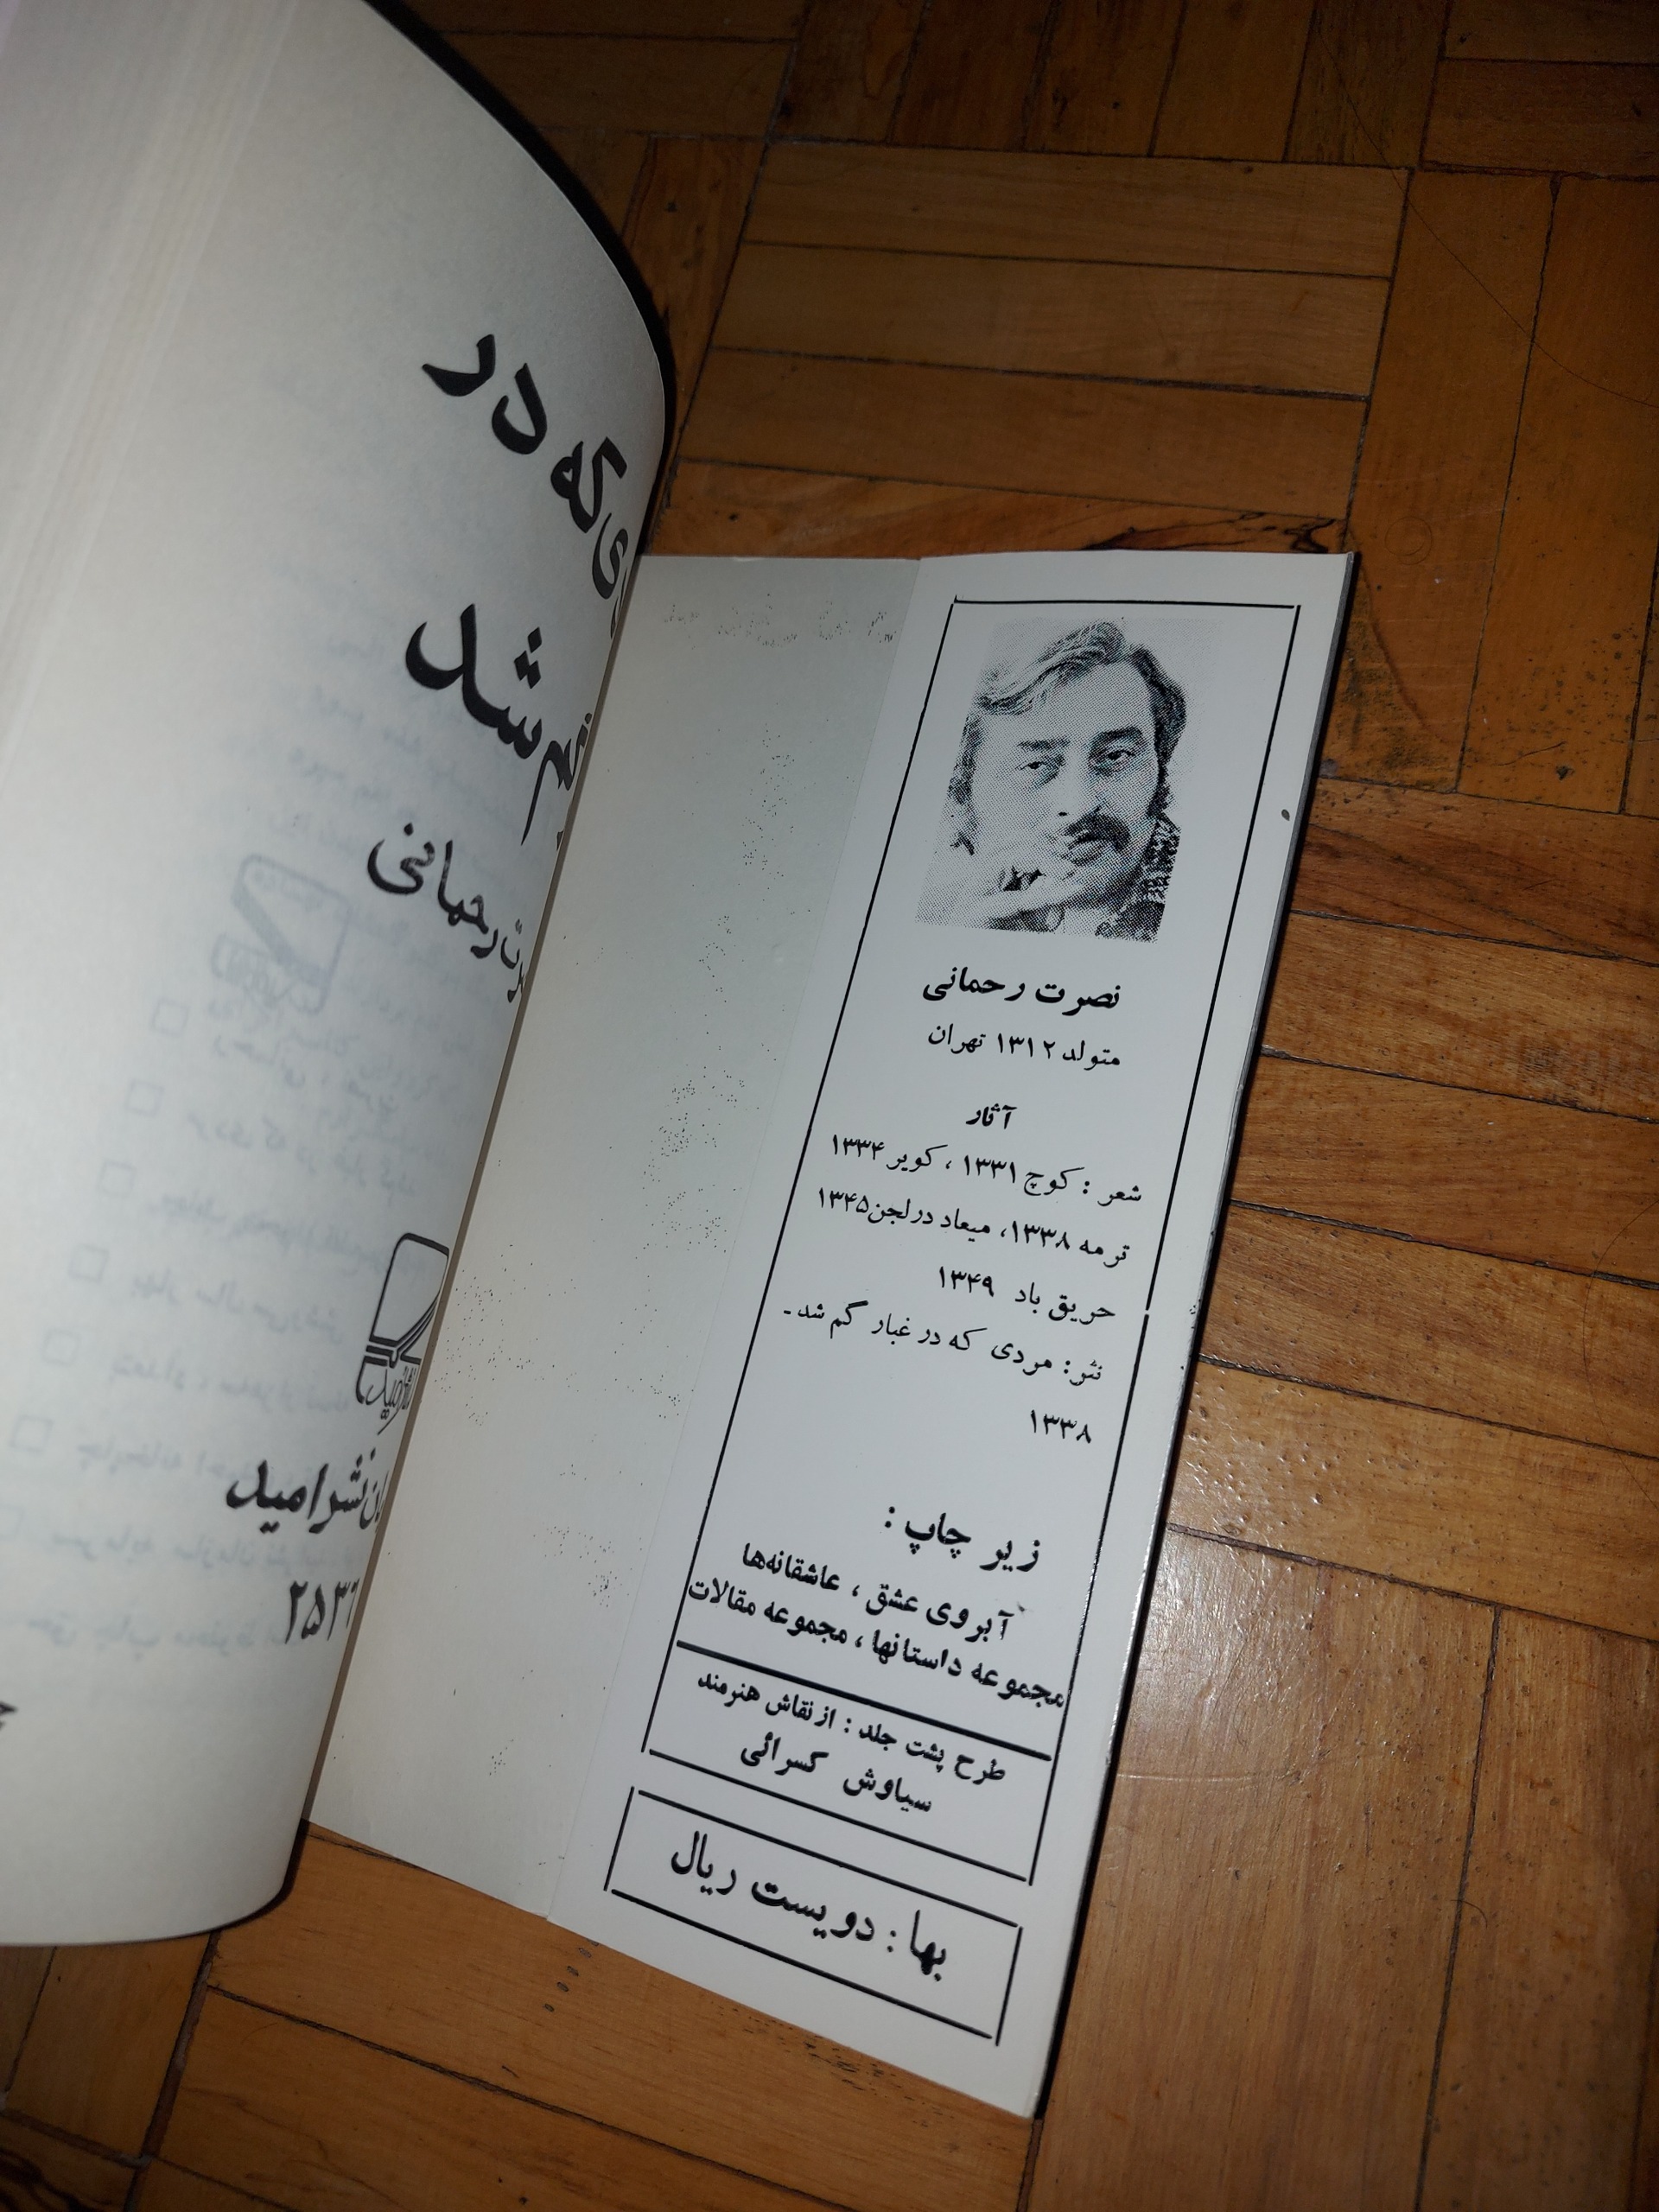 ی که در
گم شد
رحمانی
نشر امید
۲۵۳۶
نصرت رحمانی
متولد ۱۳۱۲ تهران
آثار
شعر : کوچ ۱۳۳۱ ، کویر ۱۳۳۴
ترمه ۱۳۳۸، میعاد در لجن ۱۳۴۵
حریق باد ۱۳۴۹
نثر : مردی که در غبار گم شد -
۱۳۳۸
زیر چاپ :
آبروی عشق ، عاشقانه‌ها
مجموعه داستانها ، مجموعه مقالات
طرح پشت جلد : از نقاش هنرمند
سیاوش کسرائی
بها : دویست ریال